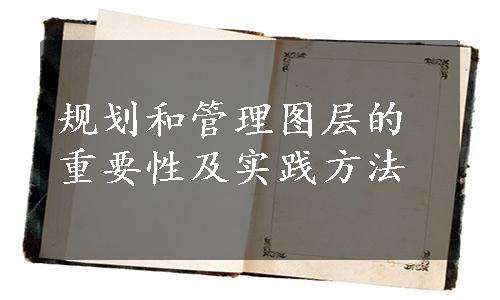 规划和管理图层的
重要性及实践方法